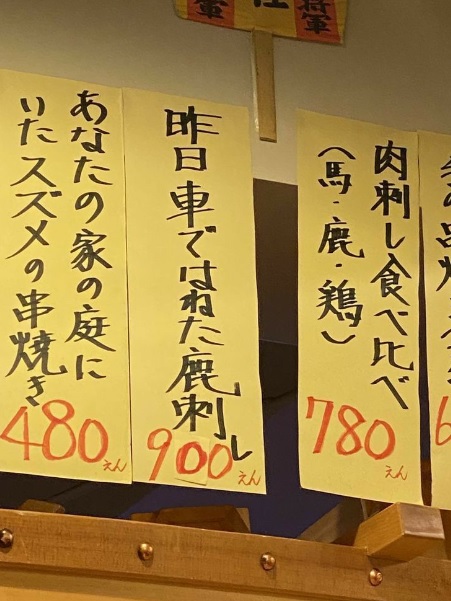 将軍
肉刺し食べ比べ
(馬・鹿・鶏)
780えん
昨日車ではねた鹿刺し
900えん
あなたの家の庭に
いたスズメの串焼き
480えん